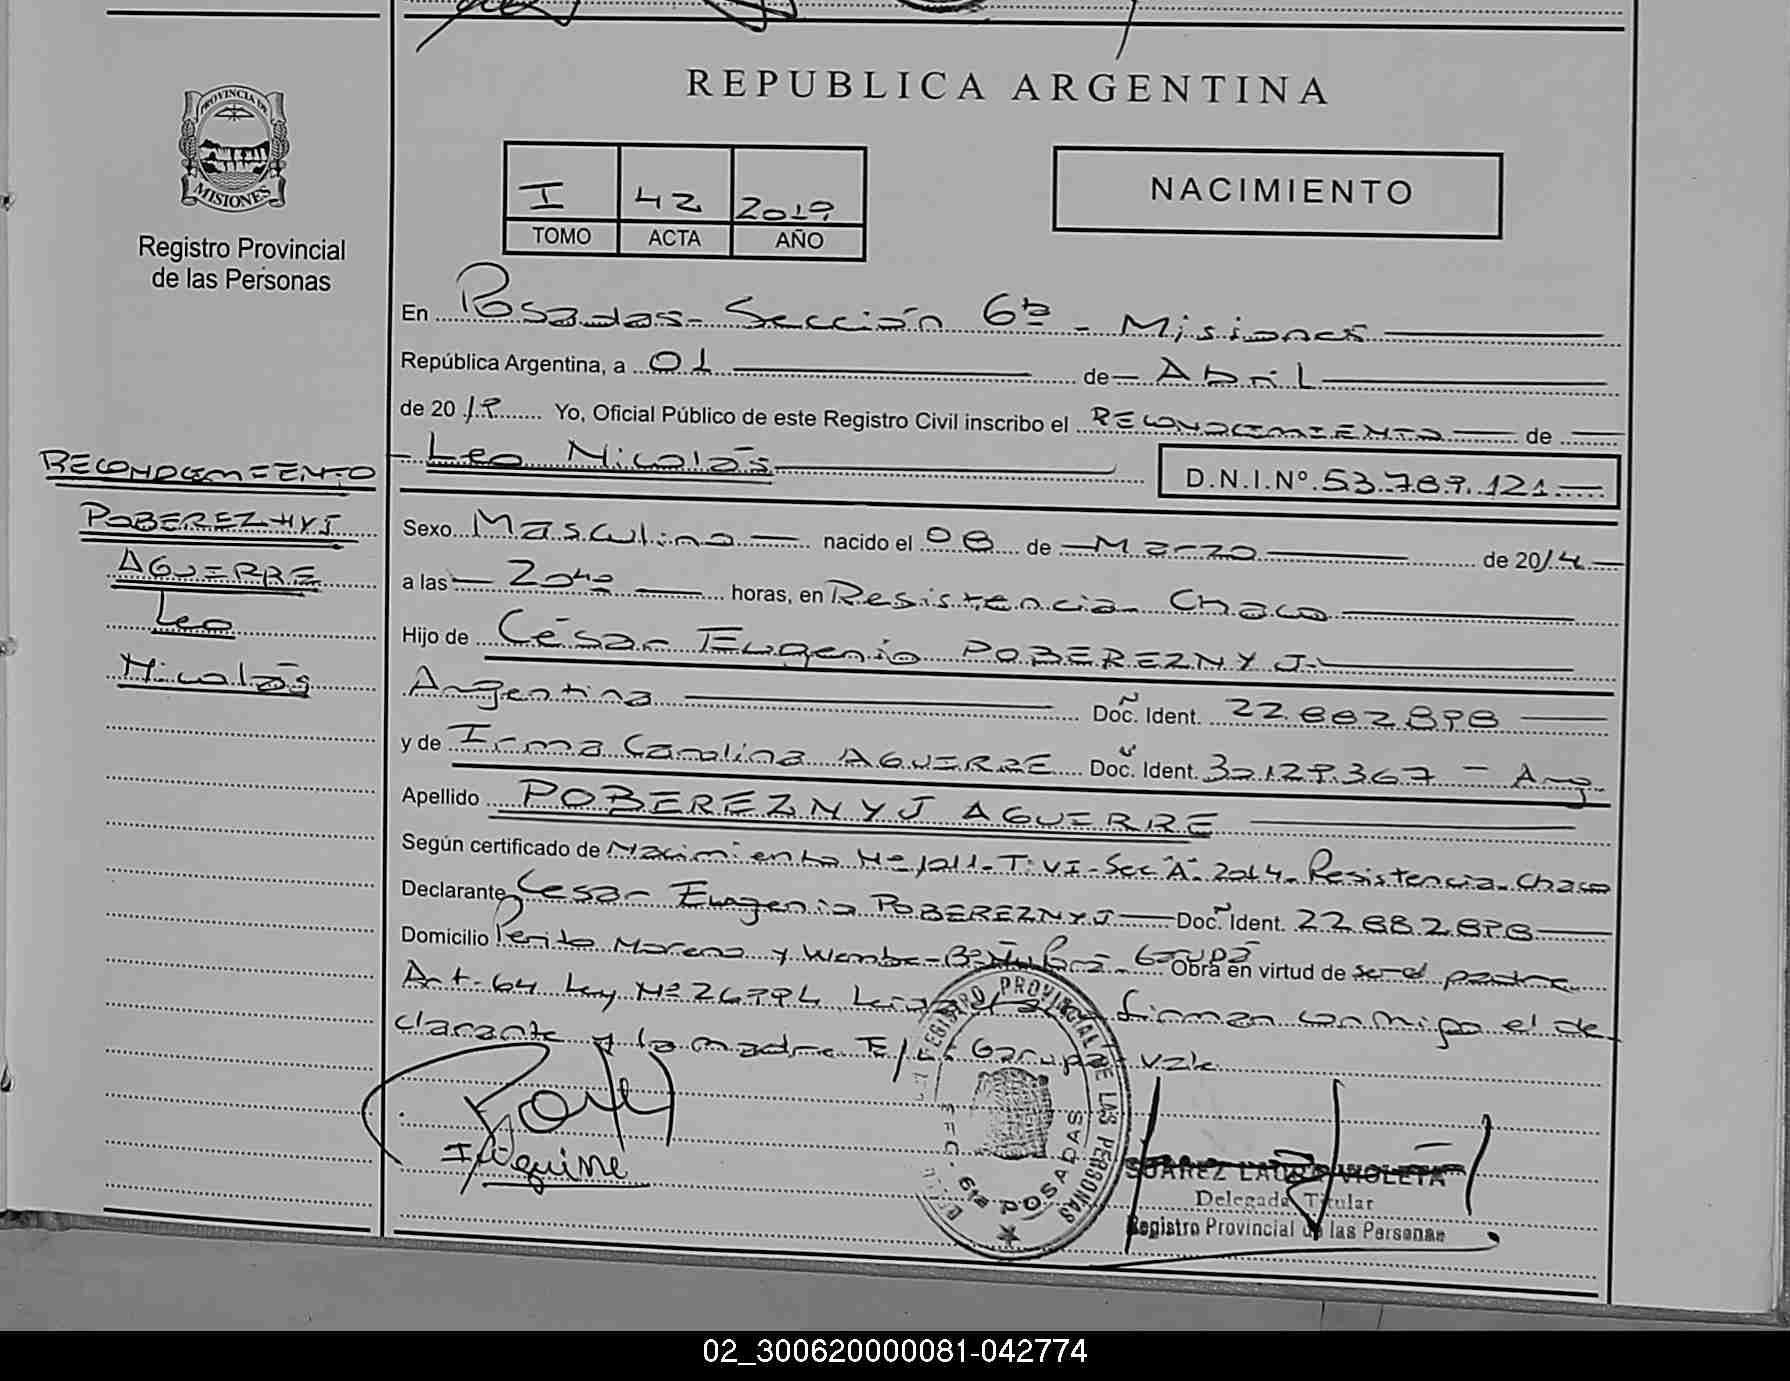 REPUBLICA ARGENTINA
PROVINCIA DE
MISIONES
Registro Provincial
de las Personas
I 42 2019
TOMO ACTA AÑO
NACIMIENTO
En Posadas - Sección 6ª - Misiones
República Argentina, a 01 de Abril
de 2019 Yo, Oficial Público de este Registro Civil inscribo el RECONOCIMIENTO de
Leo Nicolás D.N.I.Nº 53.789.121
RECONOCIMIENTO
POBEREZNYJ
AGUERRE
Leo
Nicolás
Sexo Masculino nacido el 08 de Marzo de 2014
a las 20 40 horas, en Resistencia Chaco
Hijo de César Eugenio POBEREZNYJ
Argentina Doc. Ident. 22.882.898
y de Irma Carolina AGUERRE Doc. Ident. 30.129.367 - Arg
Apellido POBEREZNYJ AGUERRE
Según certificado de Nacimiento Nº 1011 - T: VI - Sec "A" 2014 - Resistencia - Chaco
Declarante César Eugenio POBEREZNYJ Doc. Ident. 22.882.898
Domicilio Perito Moreno y Garupá Obra en virtud de ser el padre
Art. 64 Ley Nº 26994 firman conmigo el de
clarante y la madre Garupá vale
REGISTRO PROVINCIAL DE LAS PERSONAS
SEC. 6ta POSADAS
SUAREZ LAURA VIOLETA
Delegada Titular
Registro Provincial de las Personas
02_300620000081-042774